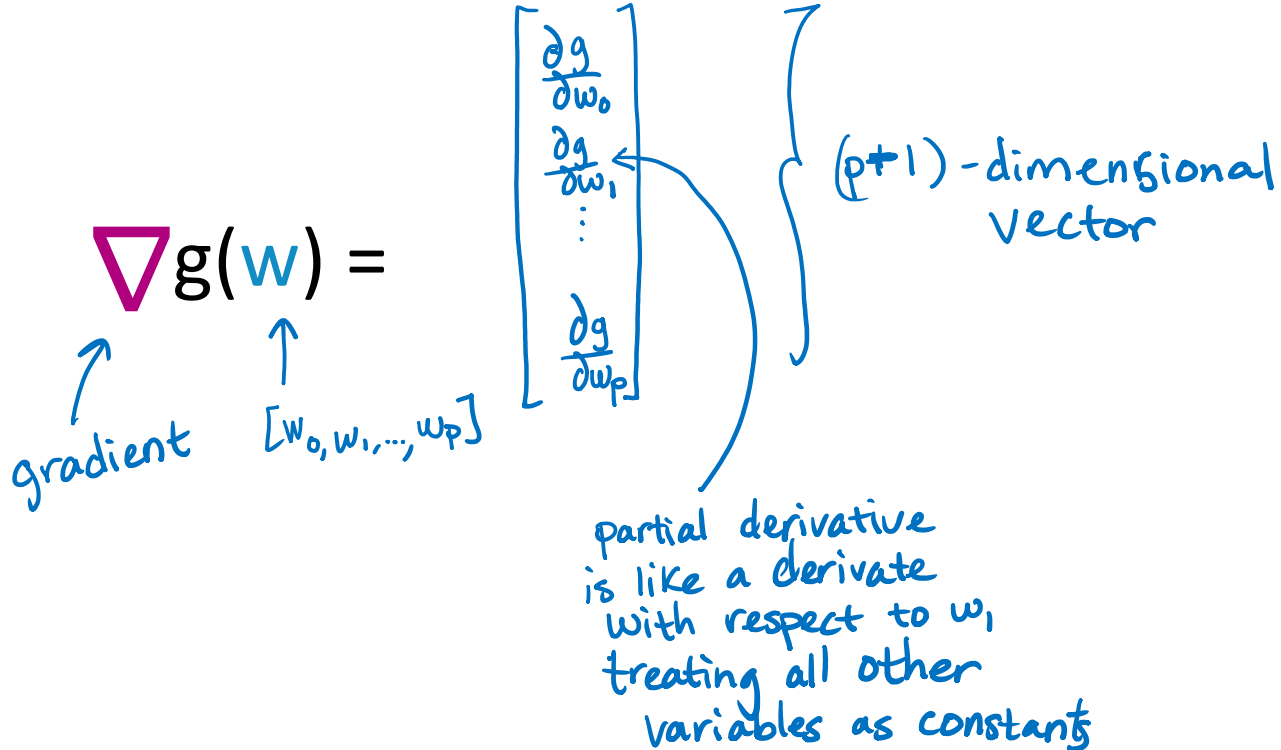 ∇g(w) =
[∂g/∂w₀
∂g/∂w₁
⋮
∂g/∂wₚ]
(p+1)-dimensional
vector
gradient
[w₀,w₁,...,wₚ]
partial derivative
is like a derivate
with respect to w₁
treating all other
variables as constants